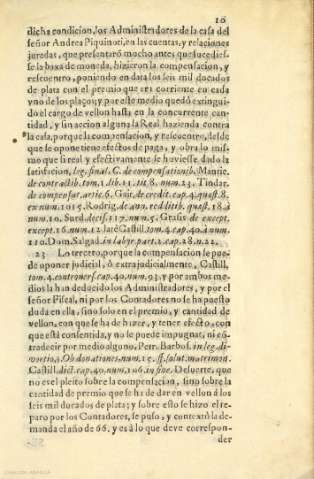 10
dicha condicion, los Administradores de la casa del
señor Andrea Piquinoti, en las cuentas, y relaciones
juradas, que presentarõ mucho antes que sucedies-
se la baxa de moneda, hizieron la compensacion, y
rescuentro, poniendo en data los seis mil ducados
de plata con el premio que era corriente en cada
vno de los plaços; y por este medio quedò extingui-
do el cargo de vellon hasta en la concurrente can-
tidad, y sin accion alguna la Real hazienda contra
la casa, porque la compensacion, y rescuentro, desde
que se opone tiene efectos de paga, y obra lo mis-
mo que si real y efectivamente se huviesse dado la
satisfacion, leg. final. C. de compensationib. Mantic.
de contractib. tom. 1. lib. 11. tit. 8. num. 23. Tindar.
de compensat. artic. 6. Gait. de credit. cap. 4. quæst. 8.
ex num. 1015. Rodrig. de ann. reditib. quæst. 18. à
num. 10. Surd. decis. 117. num. 5. Grasis de except.
except. 16. num. 12. latè Castill. tom. 4. cap. 40. à num.
110. Dom. Salgad. in labyr. part. 1. cap. 28. n. 22.
23 Lo tercero, porque la compensacion se pue-
de oponer judicial, ò extrajudicialmente, Castill.
tom. 4. controvers. cap. 40. num. 93. y por ambos me-
dios la han deducido los Administradores, y por el
señor Fiscal, ni por los Contadores no se ha puesto
duda en ella, sino solo en el premio, y cantidad de
vellon, con que se ha de hazer, y tener efecto, con
que està consentida, y no se puede impugnar, ni cõ-
tradezir por medio alguno, Petr. Barbos. in leg. di-
vortio, §. Ob donationes, num. 15. ff. solut. matrimon.
Castill. dict. cap. 40. num. 106. in fine. De suerte, que
no es el pleito sobre la compensacion, sino sobre la
cantidad de premio que se ha de dar en vellon à los
seis mil ducados de plata; y sobre esto se hizo el re-
paro por los Contadores, se puso, y contextò la de-
manda el año de 66. y es à lo que deve correspon-
der